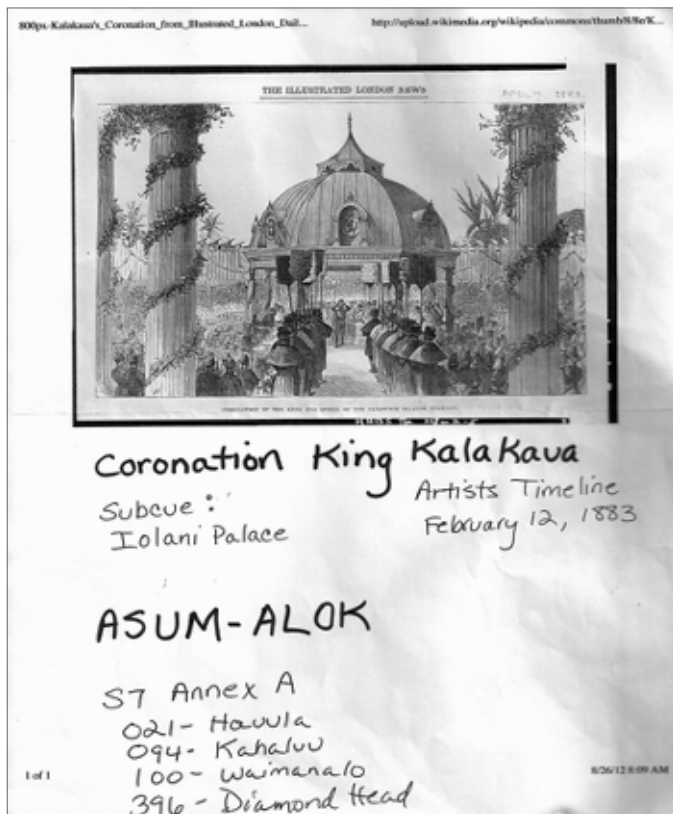 800px-Kalakaua's_Coronation_from_Illustrated_London_Dail...
http://upload.wikimedia.org/wikipedia/commons/thumb/8/8e/K...
THE ILLUSTRATED LONDON NEWS
CORONATION OF THE KING AND QUEEN OF THE SANDWICH ISLANDS
Coronation King Kalakaua
Subcue :
Iolani Palace
Artists Timeline
February 12, 1883
ASUM-ALOK
S7 Annex A
021- Hauula
094- Kahaluu
100- Waimanalo
396- Diamond Head
1 of 1
8/26/12 8:09 AM